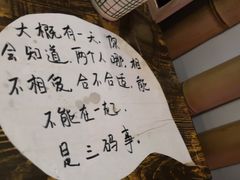 大概有一天,你
会知道,两个人哪相
不相爱,合不合适,能
不能在一起,
是三码事.